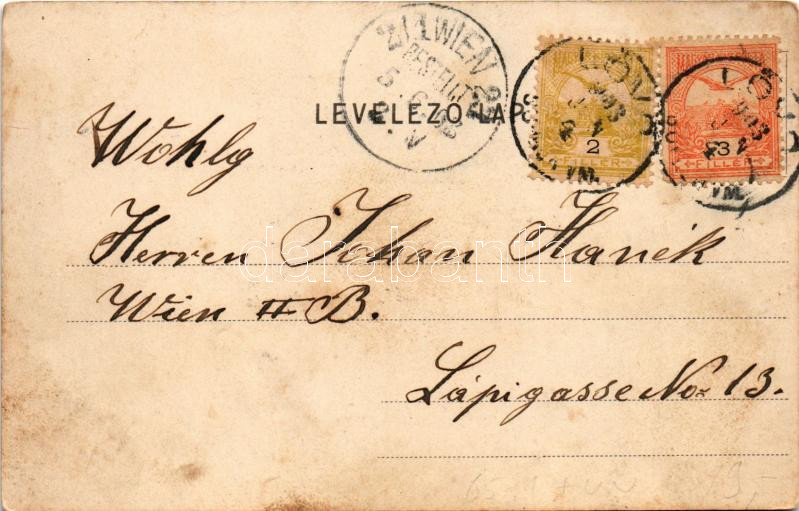 2/1 WIEN 2/1
BESTELLT
LEVELEZŐ-LAP
LÖVŐ
LÖVŐ
2
FILLÉR
3
FILLÉR
Wohlg
Herren Johan Hanék
Wien II B.
Lápigasse No 13.
darabanth